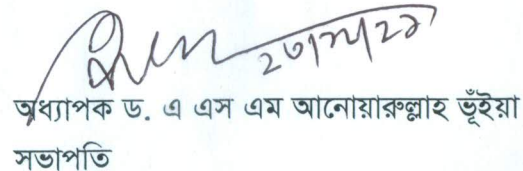 অধ্যাপক ড. এ এস এম আনোয়ারুল্লাহ ভূঁইয়া
সভাপতি